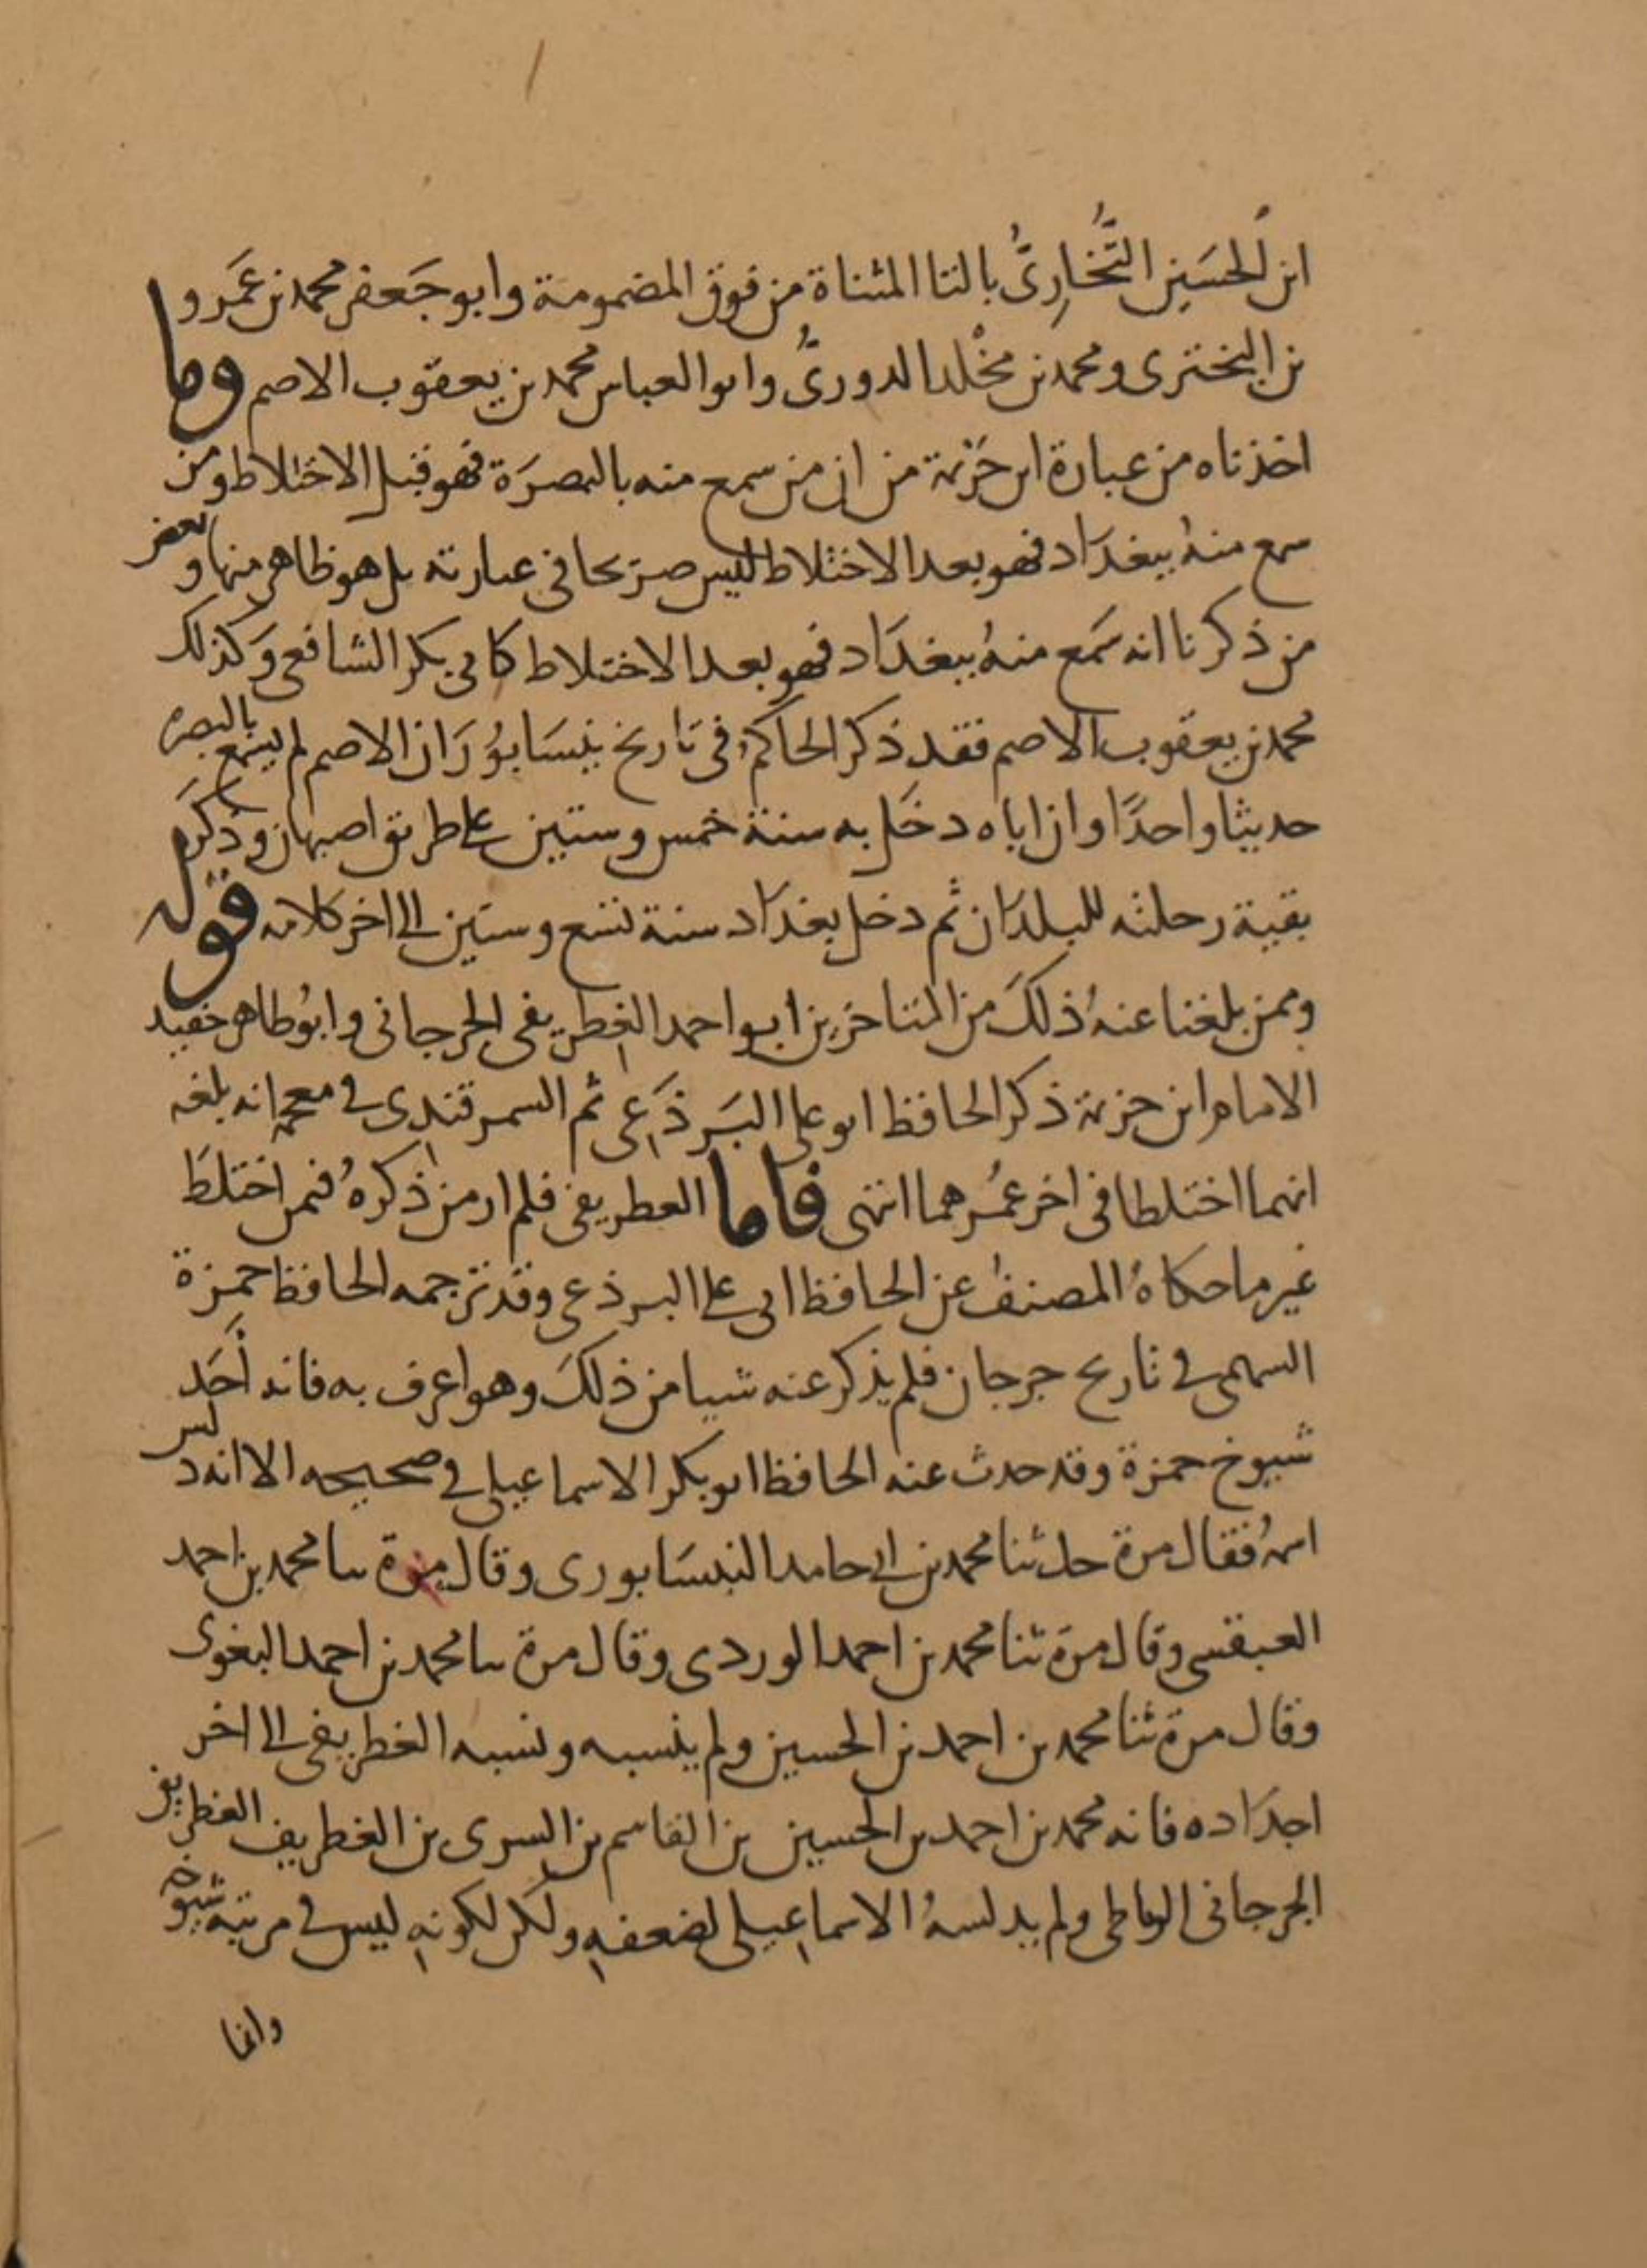 ابن الحسَين التُّخارِىُّ بالتا المثناة من فوق المضمومة وابو جَعفر محمد بن عَمرو
بن البختري ومحمد بن مخْلد الدورىُّ وابو العباس محمد بن يعقوب الاصم وما
اخذناه من عبارة ابن خزيمة من ان من سمع منه بالبصرَة فهو قبل الاختلاط ومن
سمع منهُ ببغدَاد فهو بعد الاختلاط ليس صريحا في عبارته بل هو ظاهر منها وبعض
من ذكرنا انه سَمع منهُ ببغدَاد فهو بعد الاختلاط كابي بكر الشافعي وَكذلك
محمد بن يعقوب الاصم فقد ذكر الحاكم في تاريخ نيسَابوُر اَن الاصم لم يسمع بالبصرة
حديثا واحدًا وان اباه دخَل به سنة خمس وستين على طريق اصبهان وذكرَ
بقية رحلته للبلدَان ثم دخل بغدَاد سنة تسع وستين الى اخر كلامه قوله
وممن بلغنا عنهُ ذلكَ من المتاخرين ابو احمد الغطريفي الجرجاني وابوُ طاهر حفيد
الامام ابن خزيمة ذكر الحافظ ابو على البَرذَعِي ثم السمرقندِي في معجمه انه بلغه
انهما اختلطا في اخر عمُرهما انتهى فاما الغطريفي فلم ار من ذكرهُ فيمن اختلطَ
غير ما حكاهُ المصنف عن الحافظ ابي على البرذعي وقد ترجمه الحافظ حمزة
السهمي في تاريخ جرجان فلم يذكر عنه شيا من ذلكَ وهو اعرف به فانه أحَد
شيوخ حمزة وقد حدث عنه الحافظ ابو بكر الاسماعيلي في صحيحه الا انه دلس
اسمهُ فقال مرة حدثنا محمد بن ابي حامد النيسَابوري وقال مرة ثنا محمد بن احمد
العبقسي وقال مرة ثنا محمد بن احمد الوردي وقال مرة ثنا محمد بن احمد البغوي
وقال مرة ثنا محمد بن احمد بن الحسين ولم ينسبه ونسبه الغطريفي الى اخر
اجدَاده فانه محمد بن احمد بن الحسين بن القاسم بن السري بن الغطريف الغطريفي
الجرجاني الرباطي ولم يدلسهُ الاسماعِيلي لضعفهِ ولكن لكونهِ ليس في مرتبة شيوخه
وانما